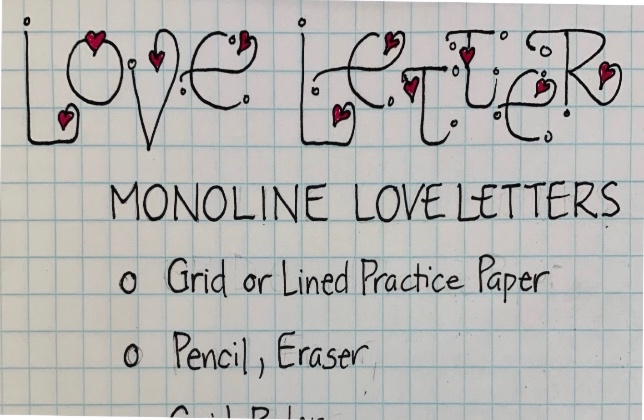 Love Letter
MONOLINE LOVE LETTERS
o Grid or Lined Practice Paper
o Pencil, Eraser